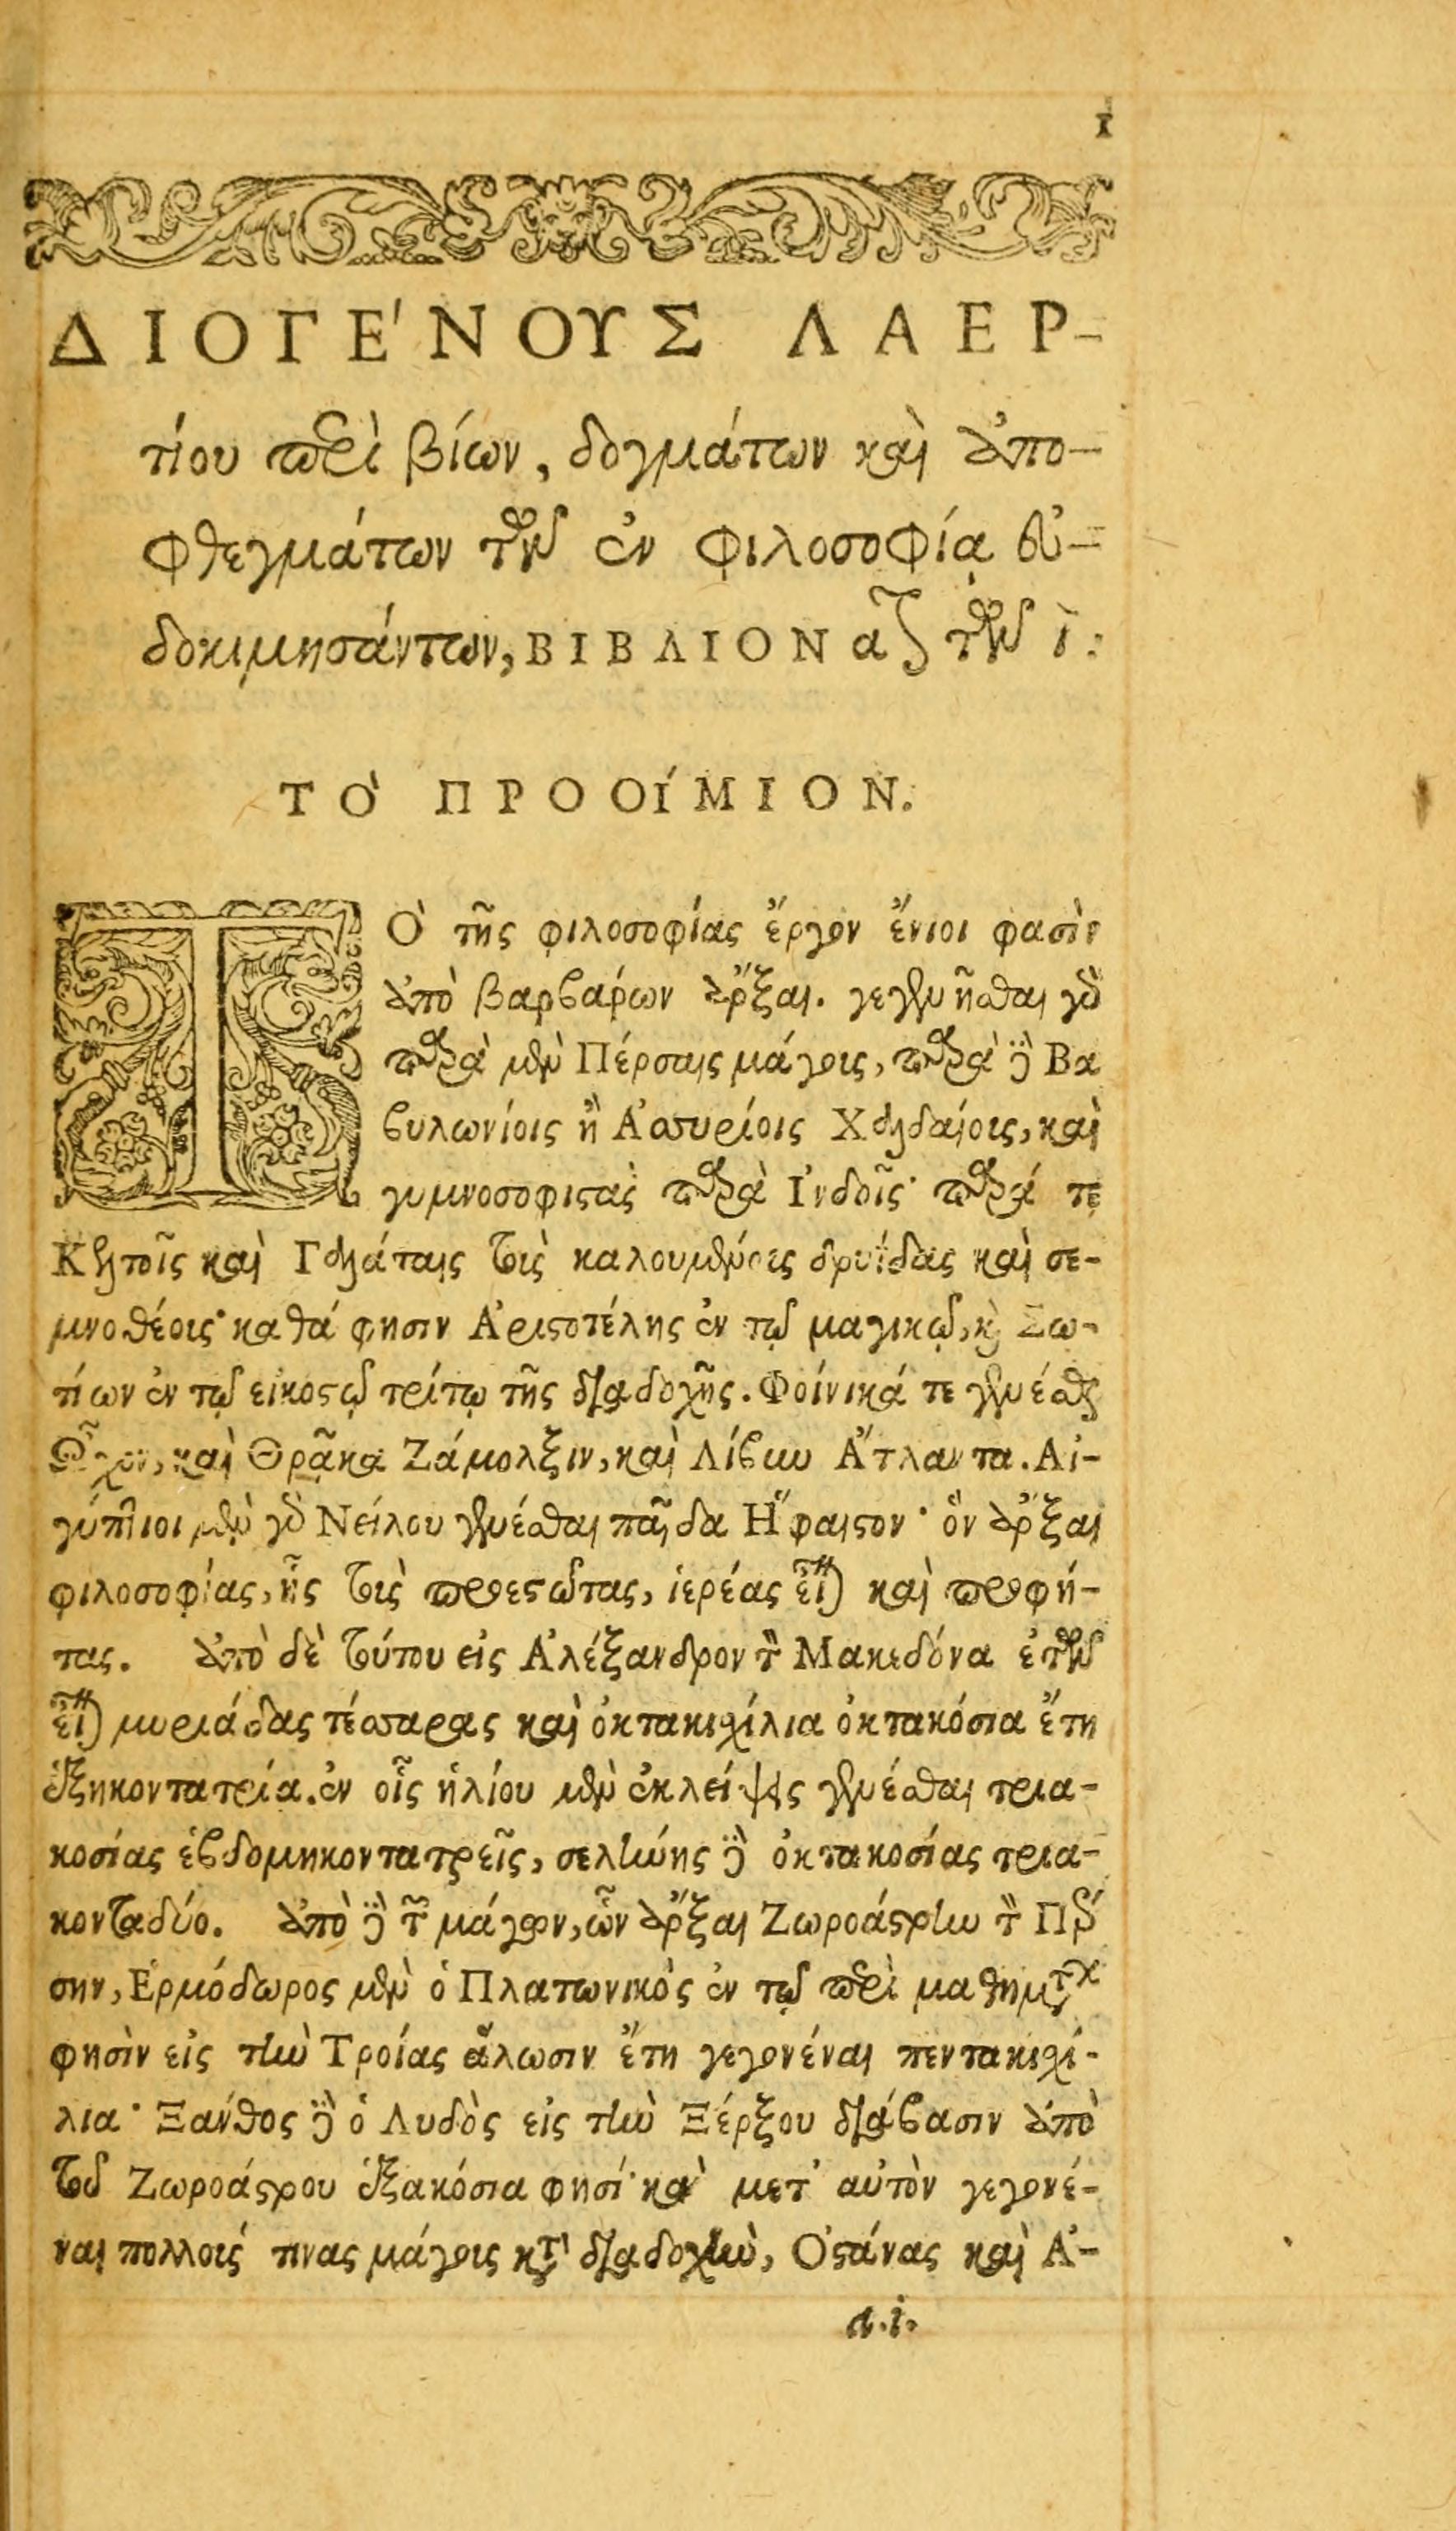 1
ΔΙΟΓΕ'ΝΟΥΣ ΛΑΕΡ-
τίου περὶ βίων, δογμάτων καὶ ἀπο-
φθεγμάτων τῶν ἐν φιλοσοφίᾳ εὐ-
δοκιμησάντων, ΒΙΒΛΙΟΝ α τῶν ι:
ΤΟ' ΠΡΟΟΙΜΙΟΝ.
ΤῸ τῆς φιλοσοφίας ἔργον ἔνιοι φασὶν
ἀπὸ βαρβάρων ἄρξαι. γεγενῆσθαι γὸ
παρὰ μὲν Πέρσαις μάγοις, παρὰ δὲ Βα
βυλωνίοις ἢ Ἀσσυρίοις Χαλδαίοις, καὶ
γυμνοσοφιστὰς παρὰ Ἰνδοῖς· παρά τε
Κελτοῖς καὶ Γαλάταις τοὺς καλουμένους δρυΐδας καὶ σε-
μνοθέους· καθά φησιν Ἀριστοτέλης ἐν τῷ μαγικῷ, καὶ Σω-
τίων ἐν τῷ εἰκοστῷ τρίτῳ τῆς διαδοχῆς. Φοίνικά τε γενέσθαι
Ὦχον, καὶ Θρᾷκα Ζάμολξιν, καὶ Λίβυν Ἄτλαντα. Αἰ-
γύπτιοι μὲν γὸ Νείλου γενέσθαι παῖδα Ἥφαιστον· ὃν ἄρξαι
φιλοσοφίας, ἧς τοὺς προεστῶτας, ἱερέας εἶναι καὶ προφή-
τας. ἀπὸ δὲ τούτου εἰς Ἀλέξανδρον τὸν Μακεδόνα ἐτῶν
εἶναι μυριάδας τέσσαρας καὶ ὀκτακιχίλια ὀκτακόσια ἔτη
ἑξηκοντατρία. ἐν οἷς ἡλίου μὲν ἐκλείψεις γενέσθαι τρια-
κοσίας ἑβδομηκοντατρεῖς, σελήνης δὲ ὀκτακοσίας τρια-
κονταδύο. ἀπὸ δὲ τῶν μάγων, ὧν ἄρξαι Ζωροάστρην τὸν Πέρ
σην, Ἑρμόδωρος μὲν ὁ Πλατωνικὸς ἐν τῷ περὶ μαθημάτων
φησὶν εἰς τὴν Τροίας ἅλωσιν ἔτη γεγονέναι πεντακιχί-
λια· Ξάνθος δὲ ὁ Λυδὸς εἰς τὴν Ξέρξου διάβασιν ἀπὸ
τοῦ Ζωροάστρου ἑξακόσια φησί· καὶ μετ' αὐτὸν γεγονέ-
ναι πολλούς τινας μάγους κατὰ διαδοχὴν, Ὀστάνας καὶ Ἀ-
a.i.